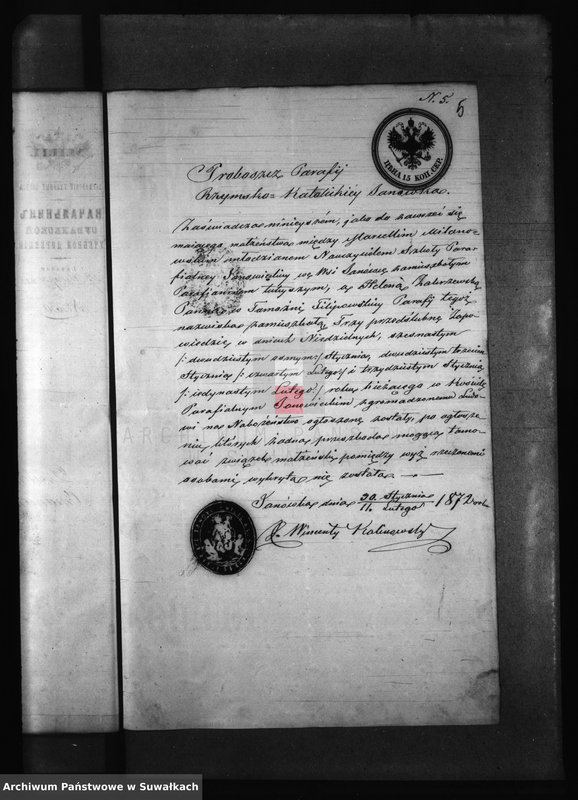 N. 5.
5
ЦѢНА 15 КОП. СЕР.
Proboszcz Parafij
Rzymsko=Katolickiej Janówka.
Zaświadcza niniejszém, jako do zawrzeć się
mającego małżeństwa między Marcellim Milano-
wskim młodzianem Nauczycielem Szkoły Para-
fialnej Janowskiej we Wsi Janówce zamieszkałym
Parafianinem tutejszym, a Heleną Zaborowską
Panną w Tamożni Filipowskiej Parafij tegoż
nazwiska zamieszkałą Trzy przedślubne Zapo-
wiedzie w dniach Niedzielnych, szesnastym
/:dwudziestym osmym:/ Stycznia, dwudziestym trzecim
Stycznia /:czwartym Lutego/ i trzydziestym Stycznia
/:jedynastym Lutego/ roku bieżącego w Kościele
Parafialnym Janowieckim zgromadzonemu Ludo-
wi na Nabożeństwo ogłoszone zostały, po ogłosze-
niu których żadna przeszkoda mogąca tamo-
wać związek małżeński pomiędzy wyż rzeczonemi
osobami, wykryta nie została.
Janówka dnia 30. Stycznia / 11. Lutego 1872 roku
X. Wincenty Kalinowski
НАЧАЛЬНИКЪ
Archiwum Państwowe w Suwałkach